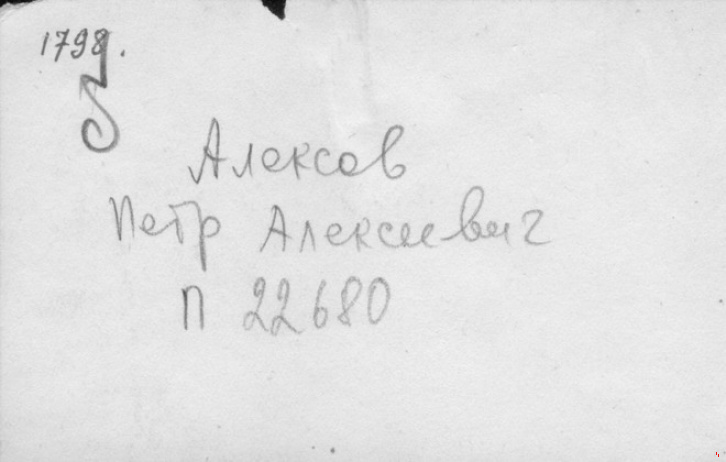 1798.
5
Алексов
Петр Алексеевич
П 22680